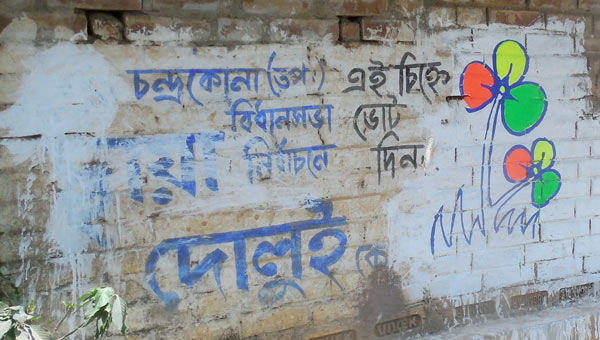 চন্দ্রকোনা (তপঃ) এই চিহ্নে
বিধানসভা ভোট
নির্বাচনে দিন
দোলুই কে
VIVEK